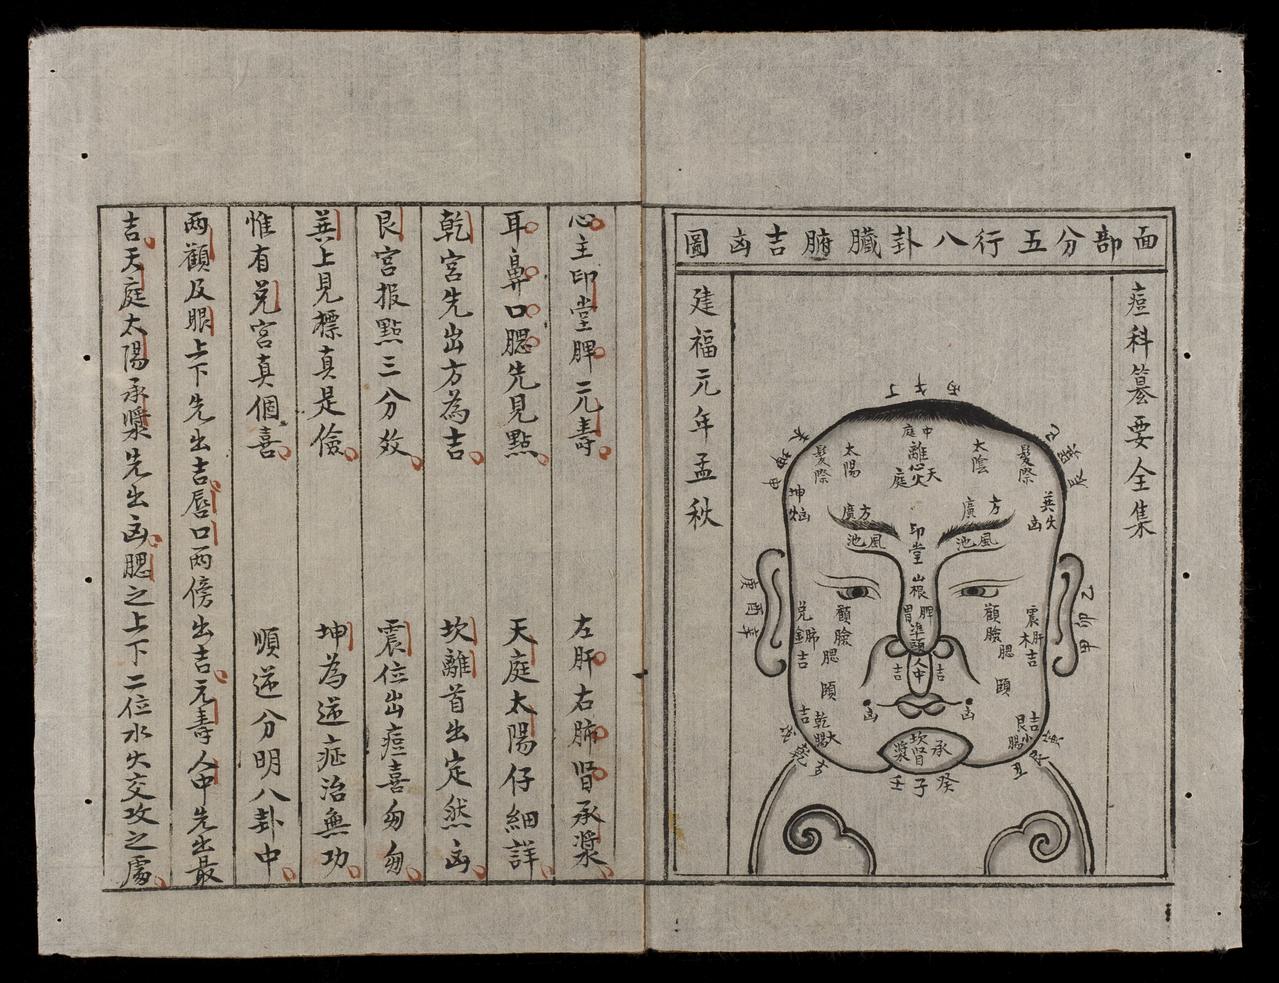 面部分五行八卦臟腑吉凶圖
痘科纂要全集
建福元年孟秋
中庭
離心火
天庭
太陽
太陰
髮際
髮際
方廣
方廣
印堂
風池
風池
山根
準頭
人中
吉
吉
凶
凶
顴臉
顴臉
腮
腮
頤
頤
兌肺金吉
震肝木吉
乾大腸吉
艮小腸吉
坎腎
承漿
壬子癸
庚酉辛
心主印堂脾元壽 左肝右肺腎承漿
耳鼻口腮先見點 天庭太陽仔細詳
乾宮先出方為吉 坎離首出定然凶
艮宮报點三分效 震位出痘喜匆匆
巽上見標真是儉 坤為逆症治無功
惟有兌宮真個喜 順逆分明八卦中
两顴及眼上下先出吉唇口两傍出吉元壽人中先出最
吉天庭太陽承漿先出凶腮之上下二位水火交攻之處